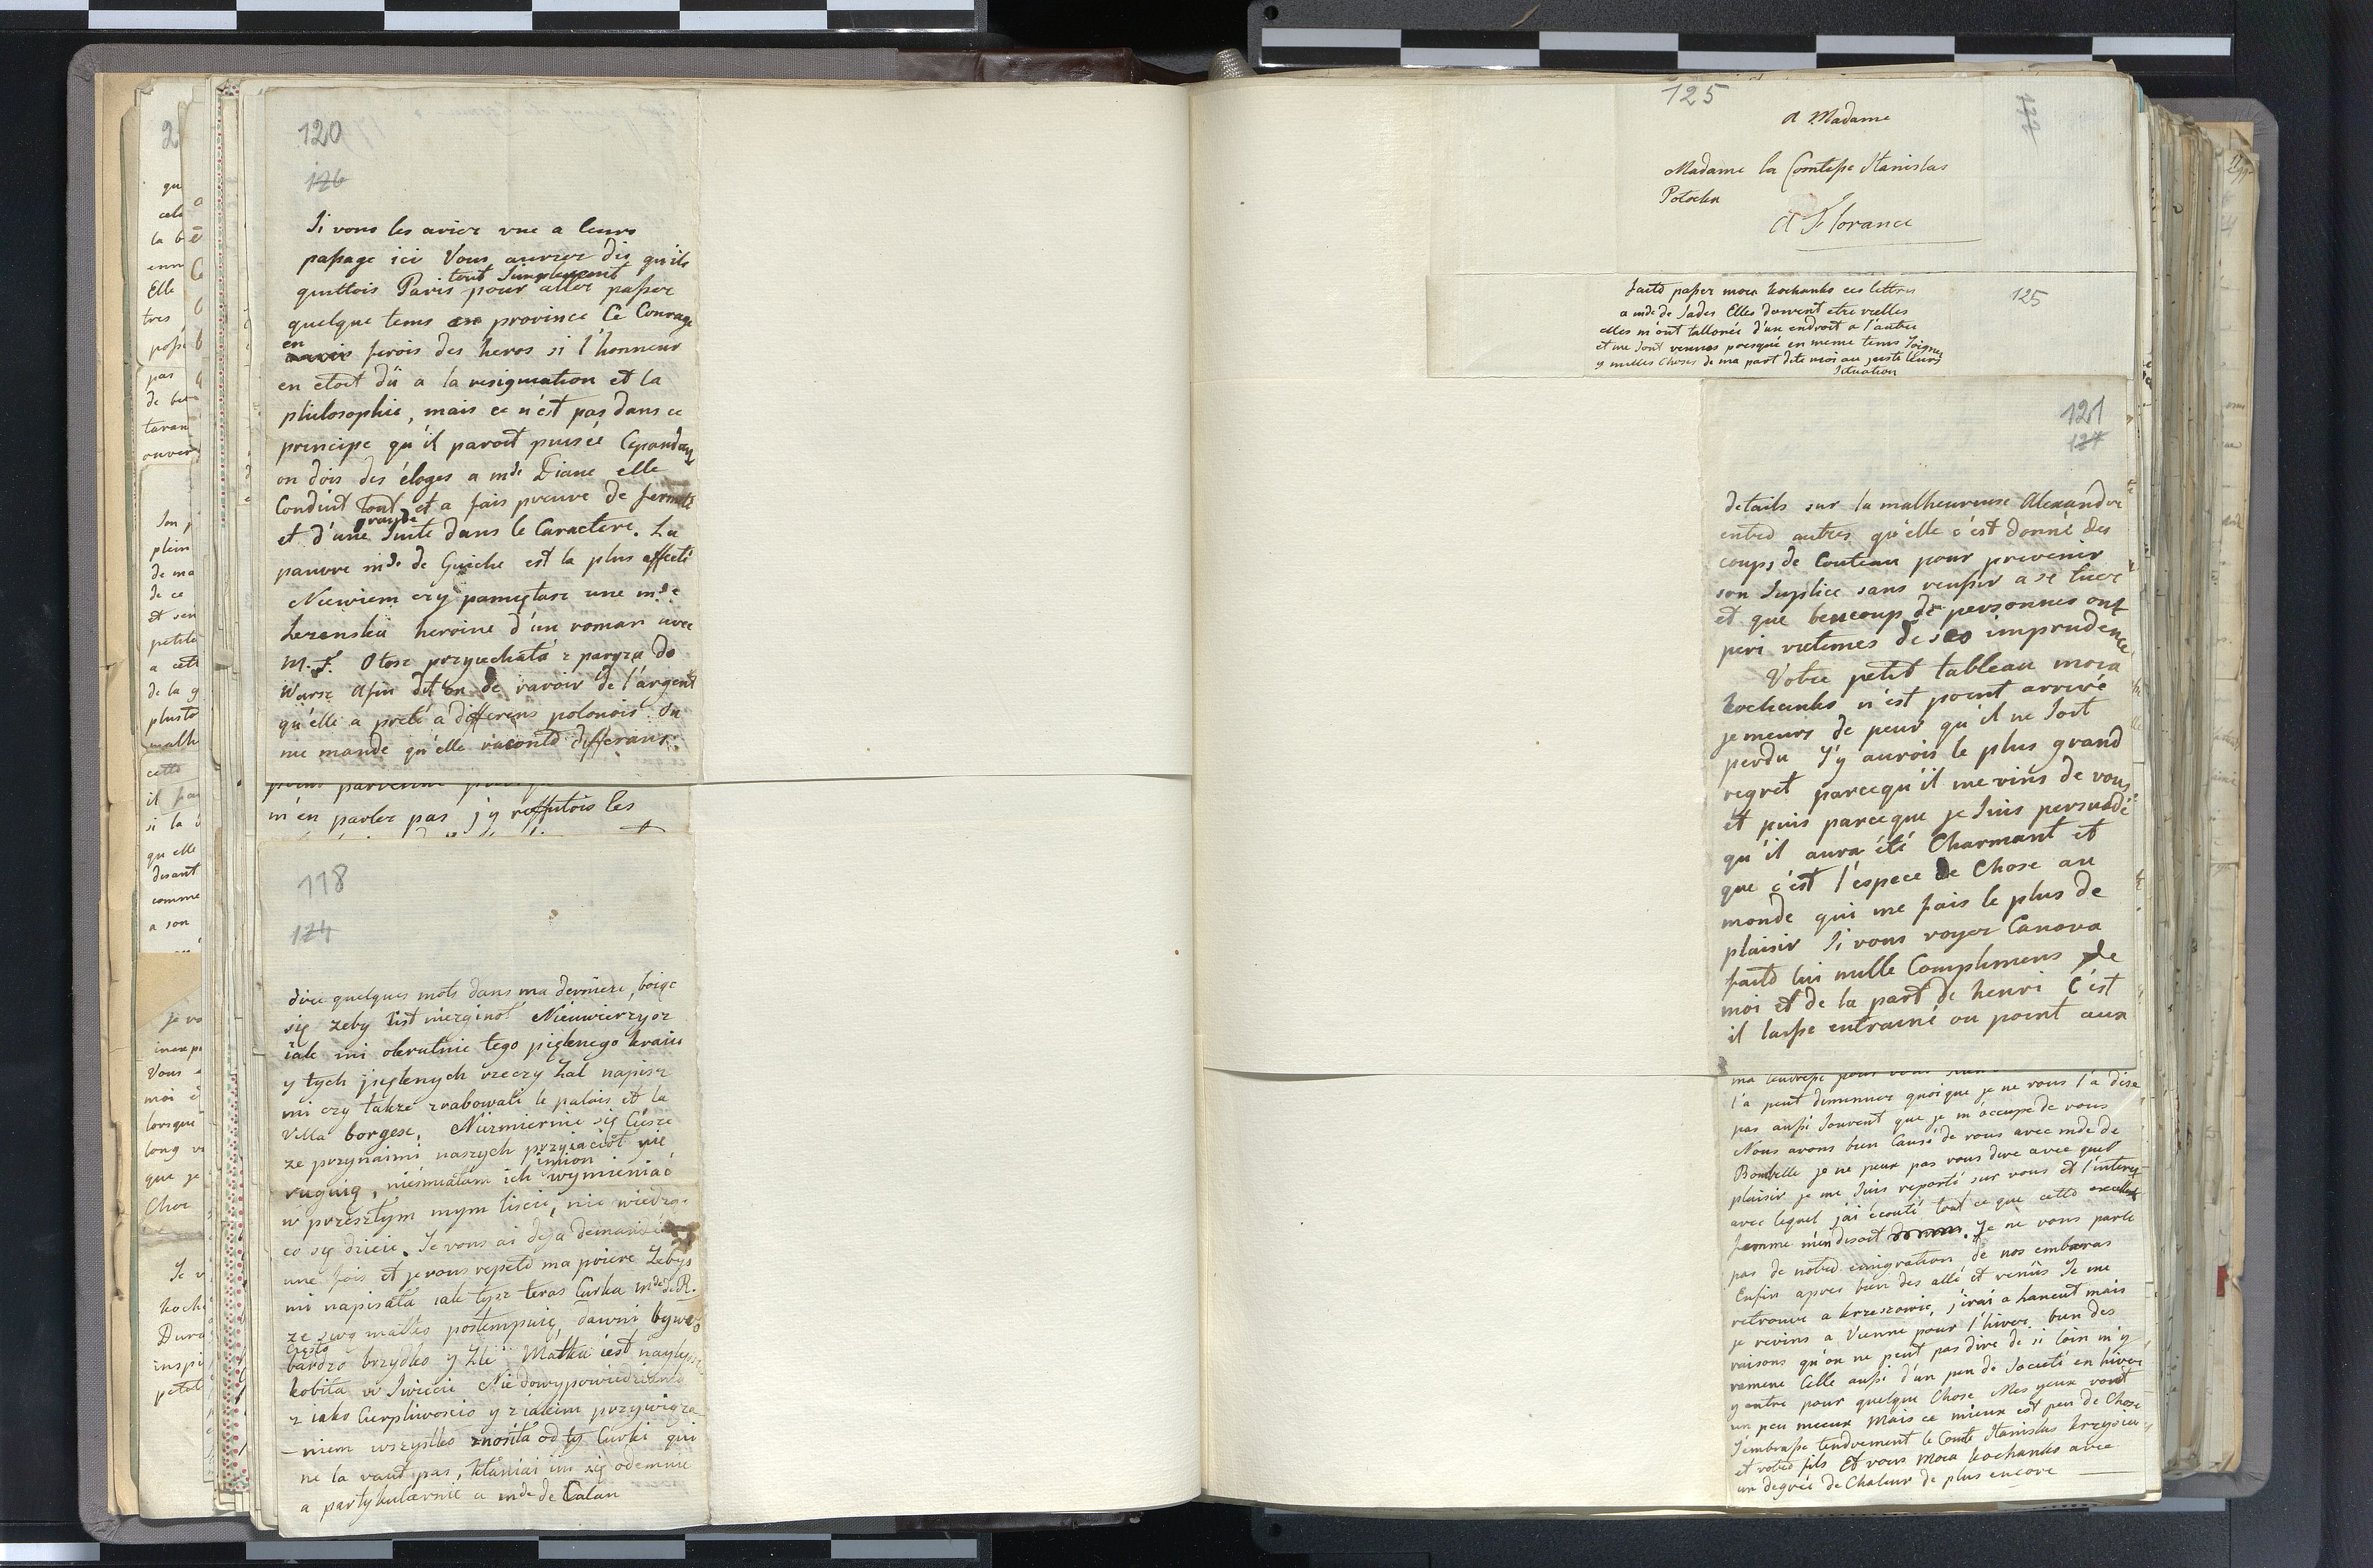 120
126
Si vous les aviez vue a leurs
passage ici Vous auriez dis qu'ils
tout Simplement
quittois Paris pour aller passer
quelque tems en province Ce Courage
en
ferois des heros si l'honneur
en etoit dû a la resignation et la
philosophie, mais ce n'est pas dans ce
principe qu'il paroit puisée Cepandant
on dois des éloges a mde Diane elle
Conduit tout et a fais preuve de fermeté
grande
et d'une Suite dans le Caractere. La
pauvre mde de Guiche est la plus affecté
Niewiem czy pamiętasz une mde
Lezenska heroine d'un roman avec
M. F. Otosz przyiechała z paryża do
Warsz afin dit on de ravoir de l'argent
qu'elle a preté a differens polonois. On
me mande qu'elle raconte differans
m'en parlez pas j'y reffutois les
118
124
dire quelques mots dans ma derniere, boię
się zeby list niezginoł Nieuwierzysz
iak mi okrutnie tego pięknego kraiu
y tych pięknych rzeczy żal napisz
mi czy także zrabowali le palais et la
Villa borgese. Niezmiernie się Ciesze
ze przynaimi naszych przyiacioł nie
imion
ruguią, nieśmiałam ich wymieniać
w przeszłym mym liście, nie wiedząc
co się dzieie. Je vous ai deja demandé
une fois et je vous repete ma priere Zebyś
mi napisała iak tysz teras Curka mde de R.
ze swą matką postempuie, dawni bywało
często
bardzo brzydko y Zle Matka iest naylepsza
kobita w Swiecie Nie dowypowiedzienia
z iako Cierpliwoscio y z iakim przywiąza
-niem wszystko znosiła od ty Curki qui
ne la vaut pas, kłaniai im się odemnie
a partykularnie a mde de Calan
125
A Madame
Madame la Comtesse Stanislas
Potocka
A Florance
125
faite passer moia kochanko ces lettres
a mde de Sades Elles doivent etre vielles
elles m'ont tallonée d'un endroit a l'autre
et me Sont venues presque en meme tems Joignez
y milles choses de ma part dite moi au juste leurs
Situation
121
127
details sur la malheureuse Alexandre
entre autres qu'elle c'est donné des
coups de Couteau pour prevenir
son Suplice sans reussir a se tuer
et que beucoup de personnes ont
peri victimes de ses imprudence
Votre petit tableau moia
kochanko n'est point arrivé
je meurs de peur qu'il ne Soit
perdu J'y aurois le plus grand
regret parcequ'il me vins de vous
et puis parceque je Suis persuadé
qu'il aura été Charmant et
que c'est l'espece de Chose au
monde qui me fais le plus de
plaisir Si vous voyez Canova
faite lui mille Complimens de
moi et de la part de henri C'est
il laisse entrainé ou point aux
l'a peut diminuer quoique je ne vous l'a dise
pas aussi Souvent que je m'occupe de vous
Nous avons bien Causé de vous avec mde de
Bombelle je ne peux pas vous dire avec quel
plaisir je me Suis reporté sur vous et l'interet
avec lequel j'ai écouté tout ce que cette excellente
femme m'en disoit. Je ne vous parle
pas de notre emigration de nos embaras
Enfin apres bien des allé et venüs Je me
retrouve a krzeszowic, j'irai a Lancut mais
je revins a Vienne pour l'hiver bien des
raisons qu'on ne peut pas dire de si loin m'y
ramene Celle aussi d'un peu de Societé en hiver
y entre pour quelque Chose Mes yeux vont
un peu mieux Mais ce mieux est peu de Chose
J'embrasse tendrement le Comte Stanislas krzysia
et votre fils Et vous Moia kochanko avec
un degrée de Chaleur de plus encore